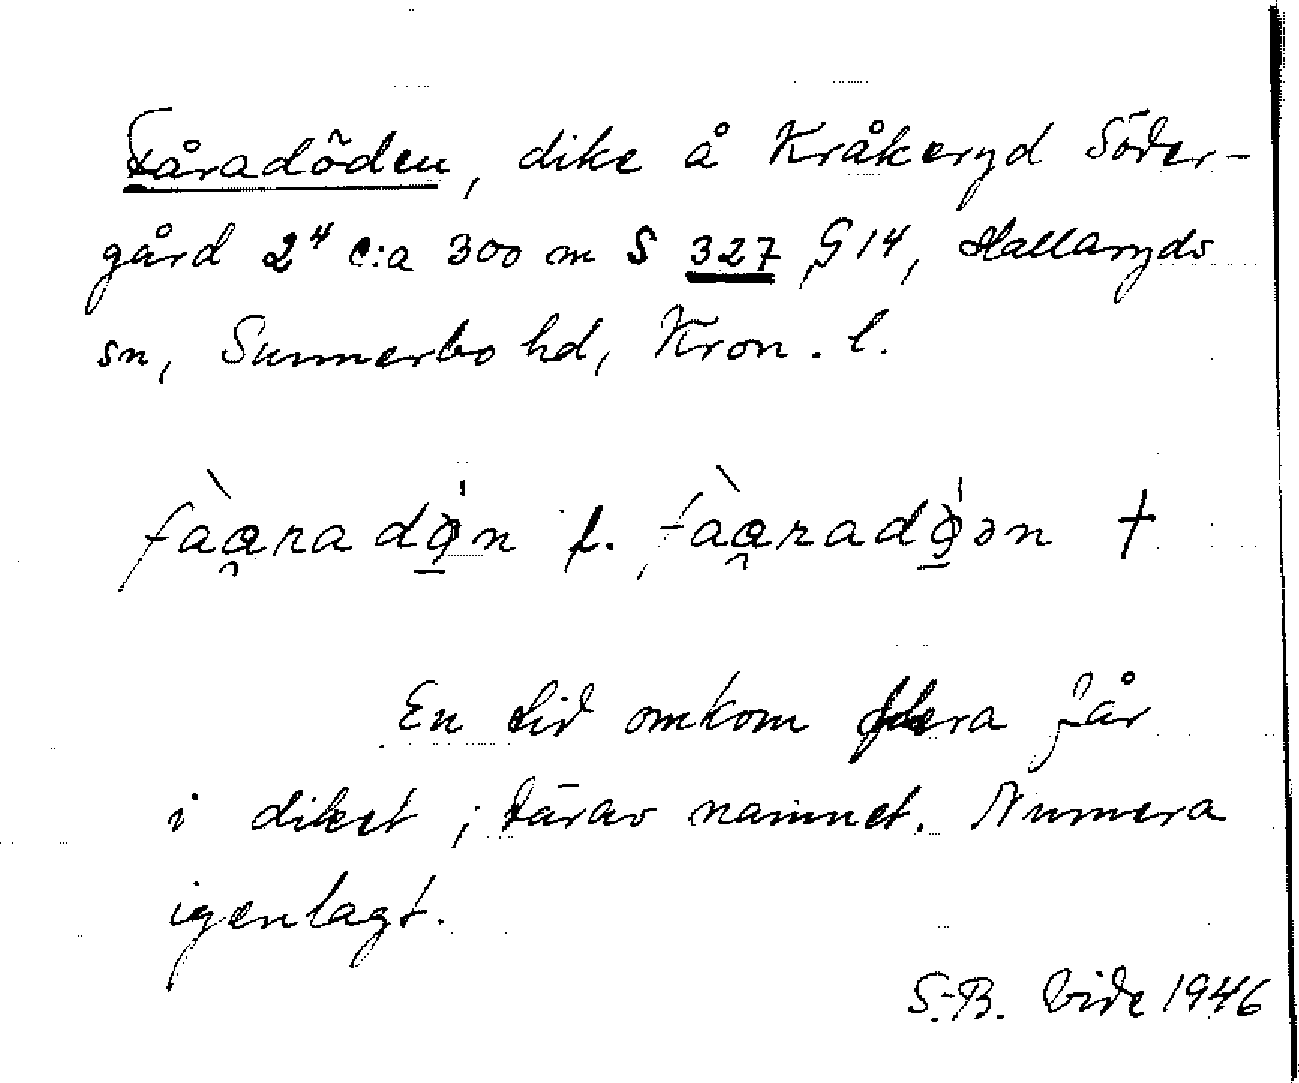 Fåradöden, dike å Kråkeryd Söder-
gård 2⁴ c:a 300 m S 327, G14, Hallaryds
sn, Sunnerbo hd, Kron. l.
fàa̯radǿn l. fàa̯radǿən †
En tid omkom flera får
i diket; därav namnet. Numera
igenlagt.
S.-B. Vide 1946